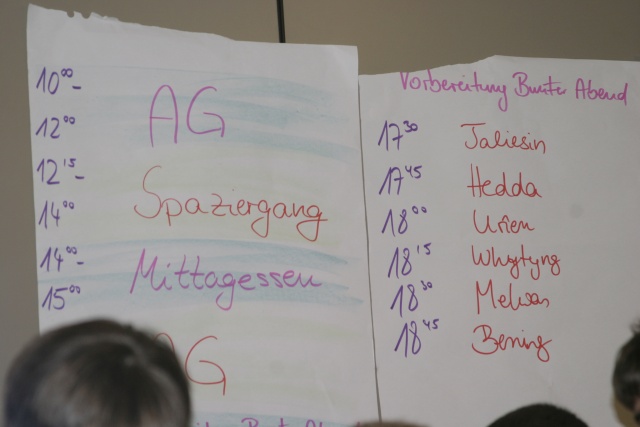 10⁰⁰-
12⁰⁰ AG
12¹⁵-
14⁰⁰ Spaziergang
14⁰⁰-
15⁰⁰ Mittagessen
AG
Vorbereitung Bunte Abend
17³⁰ Taliesin
17⁴⁵ Hedda
18⁰⁰ Urien
18¹⁵ Whgtyng
18³⁰
18⁴⁵ Bening